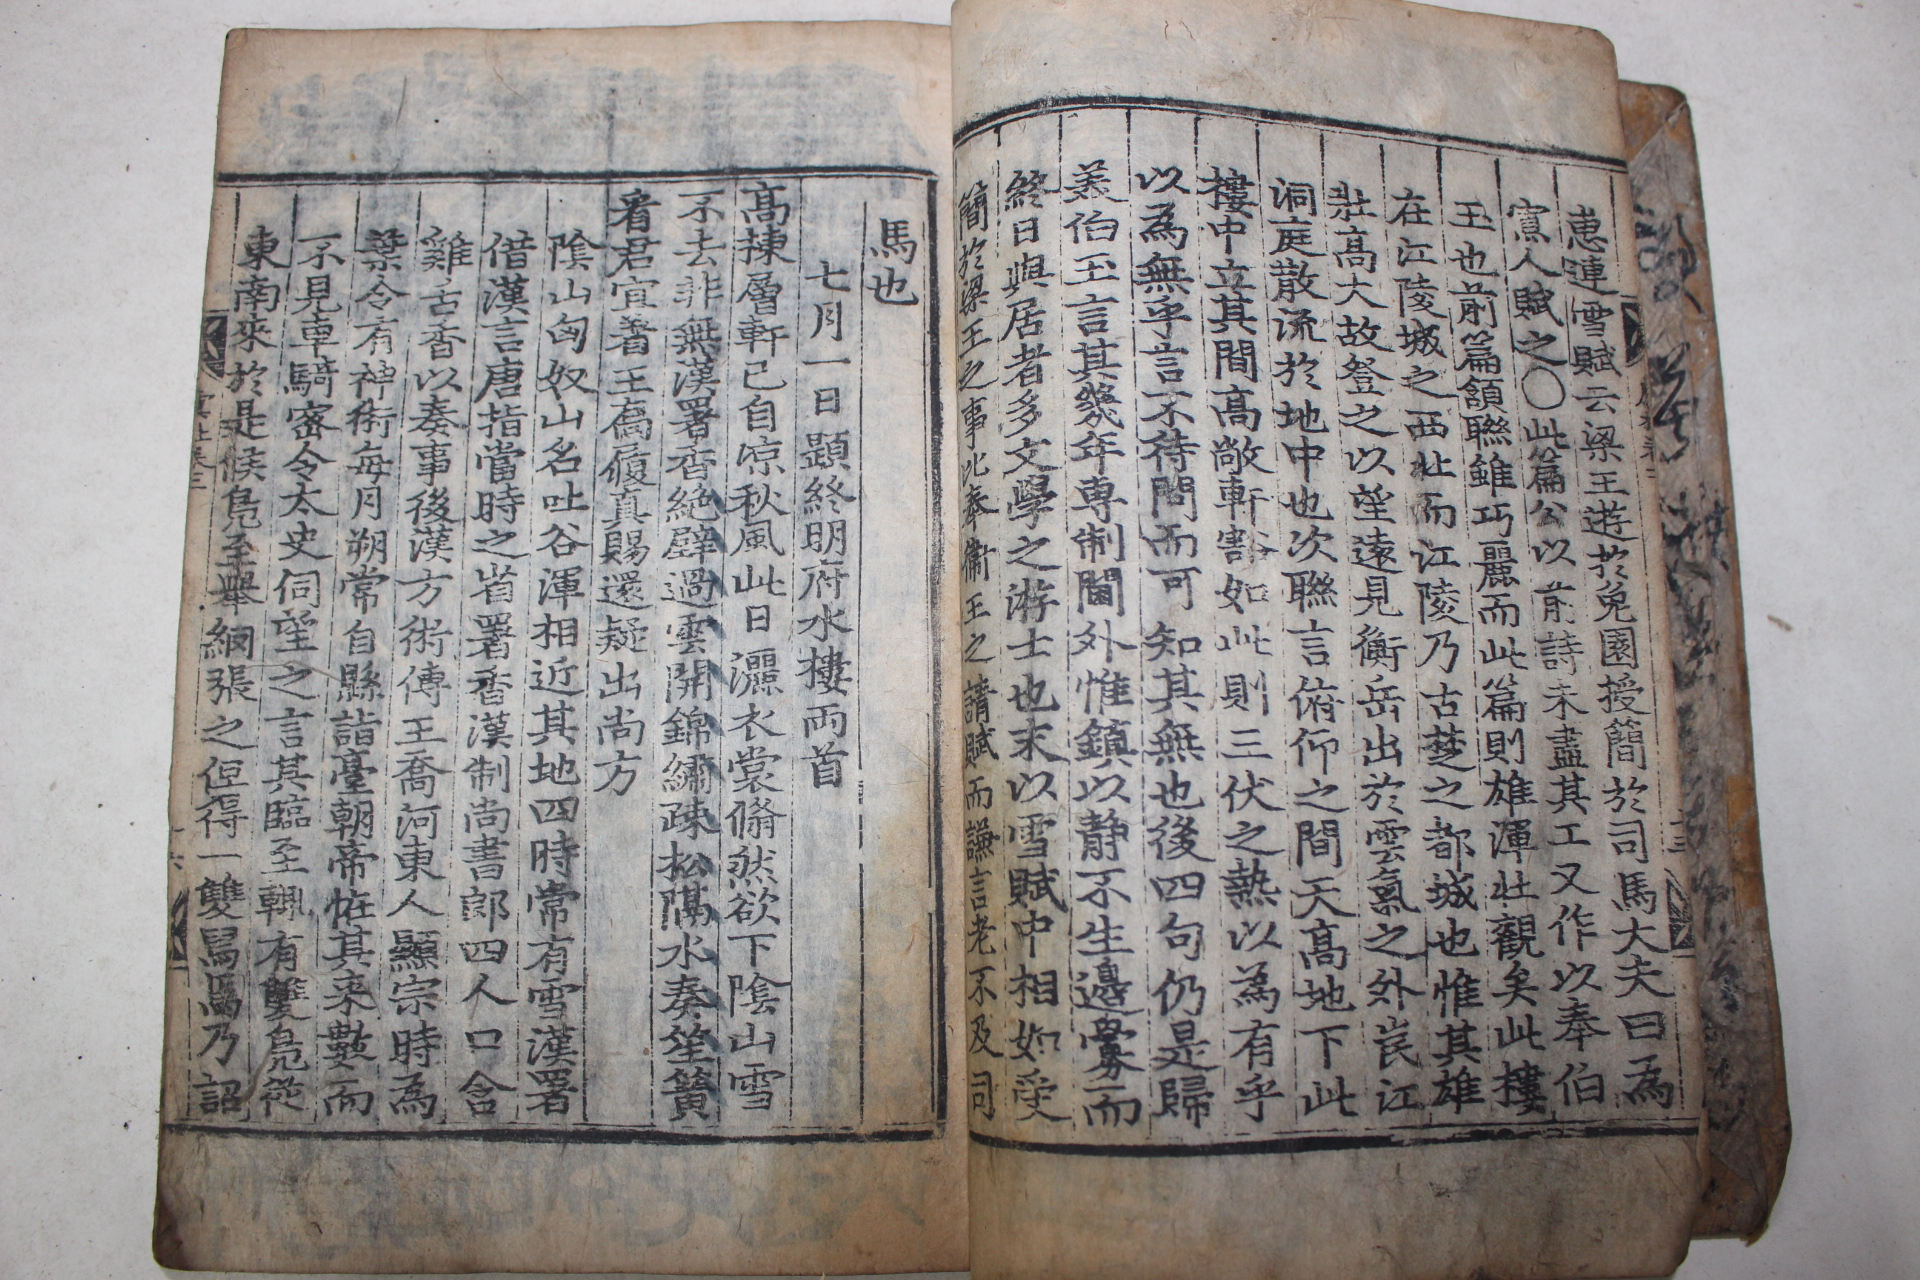 惠連雪賦云梁王遊於兔園授簡於司馬大夫曰為
寡人賦之〇此篇公以前詩未盡其工又作以奉伯
玉也前篇頷聯雖巧麗而此篇則雄渾壯觀矣此樓
在江陵城之西北而江陵乃古楚之都城也惟其雄
壯高大故登之以望遠見衡岳出於雲氣之外岷江
洞庭散流於地中也次聯言俯仰之間天高地下此
樓中立其間高敞軒豁如此則三伏之熱以為有乎
以為無乎言不待問而可知其無也後四句仍是歸
美伯玉言其幾年專制閫外惟鎮以靜不生邊釁而
終日與居者多文學之游士也末以雪賦中相如受
簡於梁王之事比奉衛王之請賦而謙言老不及司
馬也
七月一日題終明府水樓兩首
高揀層軒已自凉秋風此日灑衣裳翛然欲下陰山雪
不去非無漢署香絶壁過雲開錦繡疎松隔水奏笙簧
看君宜著王喬履真賜還疑出尚方
陰山匈奴山名吐谷渾相近其地四時常有雪漢署
借漢言唐指當時之省署香漢制尚書郎四人口含
雞舌香以奏事後漢方術傳王喬河東人顯宗時為
葉令有神術每月朔常自縣詣臺朝帝恠其来數而
不見車騎密令太史伺望之言其臨至輒有雙鳧從
東南來於是候鳧至舉網張之但得一雙舄焉乃詔